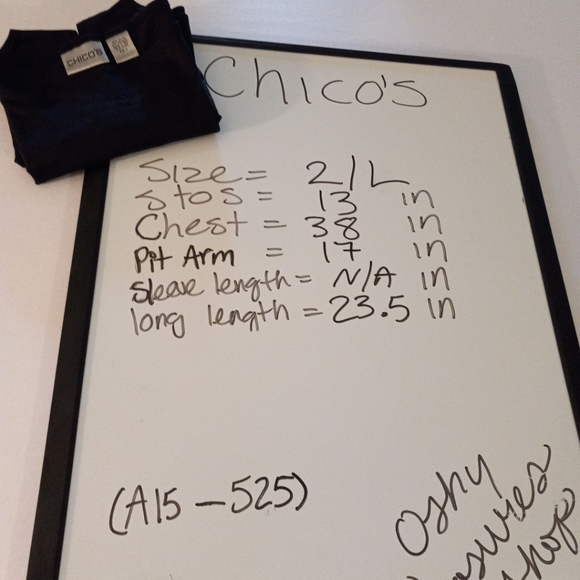 CHICO'S
Chico's
Size = 2/L
S to S = 13 in
Chest = 38 in
Pit Arm = 17 in
Sleave length = N/A in
long length = 23.5 in
(A15 - 525)
Oshy